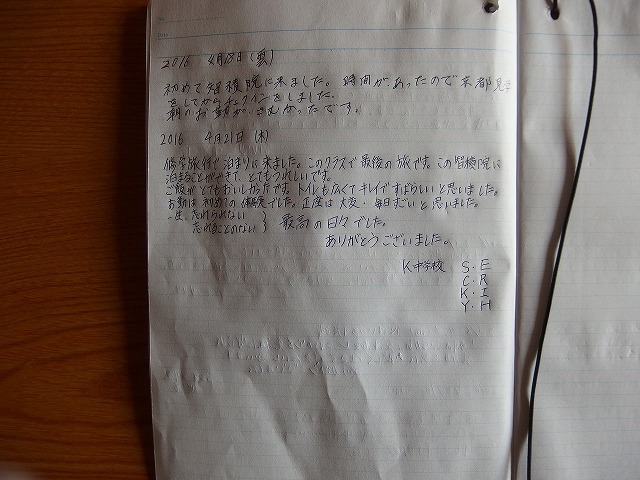 2016 4月18日(裏)
初めて智積院に来ました。時間があったので京都見学
をしてからチェックインをしました。
朝のお勤が、さむかったです。
2016 4月21日(木)
修学旅行で泊まりに来ました。このクラスで最後の旅です。この智積院に
泊まることができて、とてもうれしいです。
ご飯がとてもおいしかったです。トイレも広くてキレイですばらしいと思いました。
お勤は初めての体験でした。正座は大変・毎日すごいと思いました。
一生、忘れられない
忘れることのない } 最高の日々でした。
ありがとうございました。
K中学校 S・E
C・R
K・I
Y・H